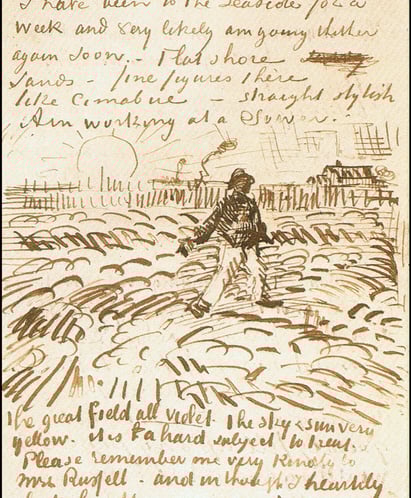 I have been to the seaside for a
week and very likely am going thither
again soon. - Flat shore
sands - fine figures there
like Cimabue - straight stylish
Am working at a Sower.
the great field all violet. the sky & sun very
yellow. it is a hard subject to treat.
Please remember me very kindly to
mrs Russell - and in thought I heartily